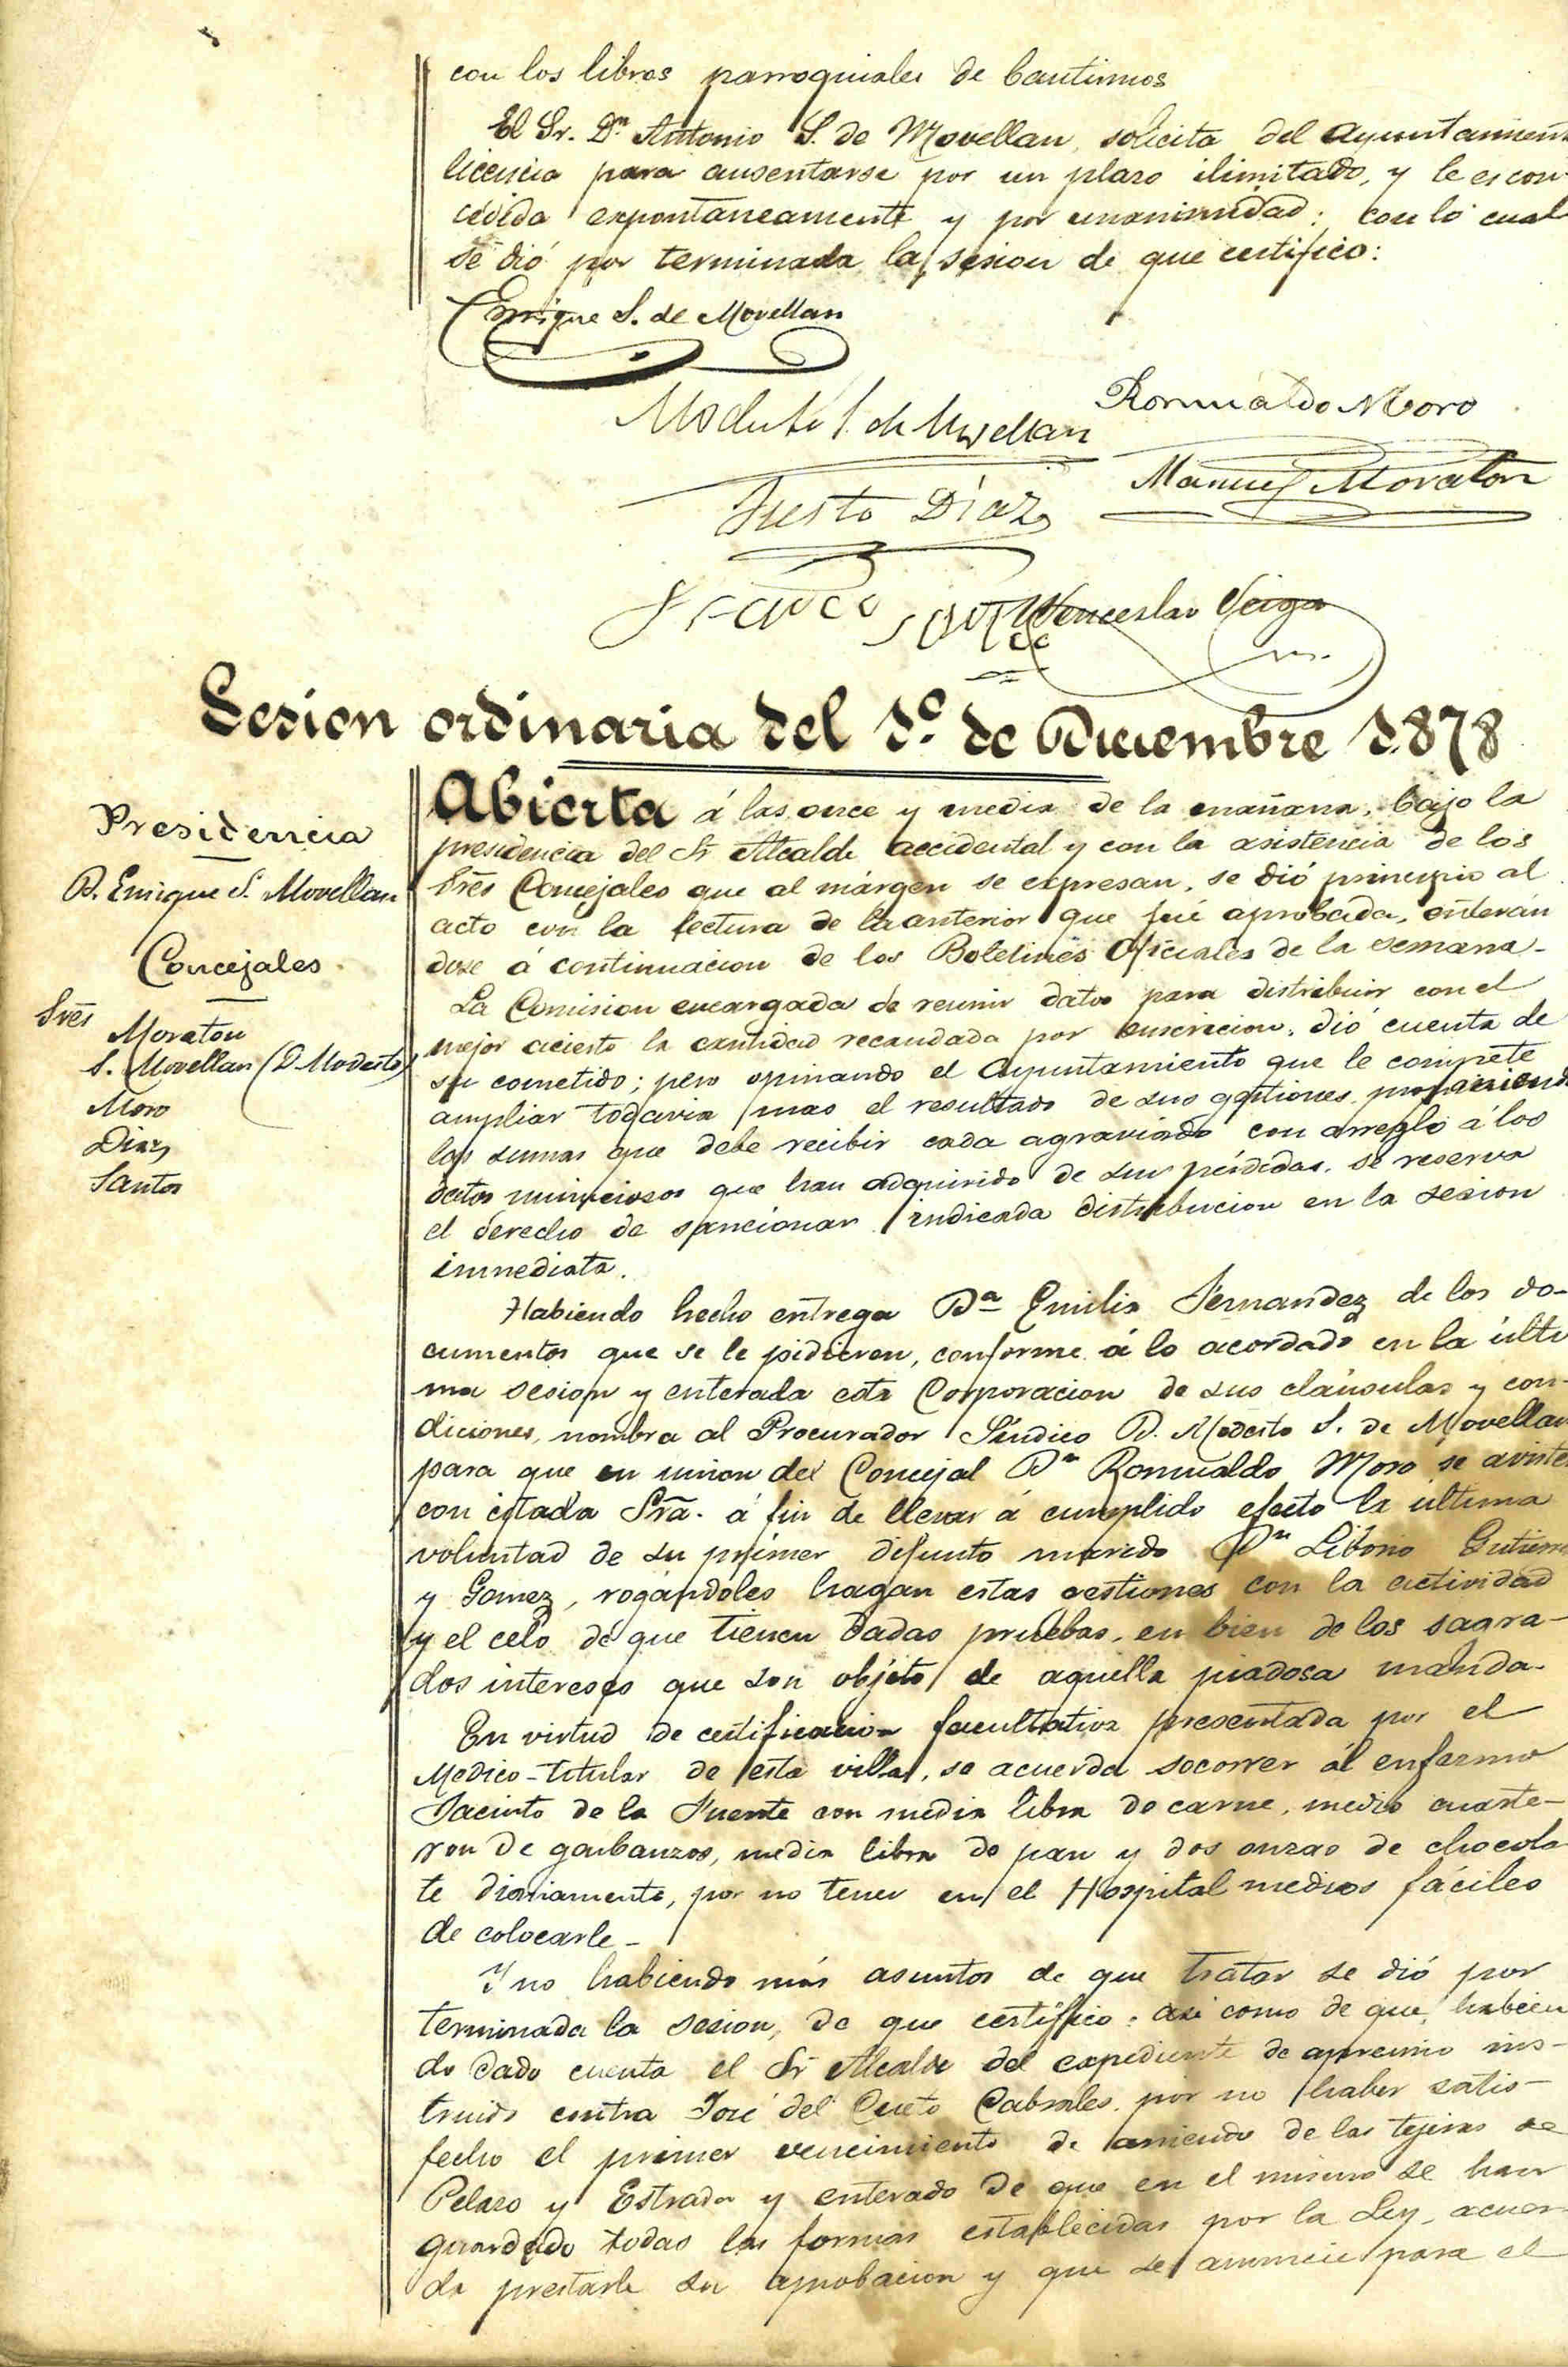 con los libros parroquiales de bautismos
El Sr. Dn Antonio S. de Movellan, solicita del Ayuntamien
licencia para ausentarse por un plazo ilimitado, y le es con
cedida expontaneamente y por unanimidad: con lo cual
se dió por terminada la sesion de que certifico:
Enrique S. de Movellan
Romualdo Moro
Modesto S. de Movellan
Manuel Moraton
Justo Diaz
Wenceslao Veiga
Sesion ordinaria del 1º de Diciembre 1.878
Presidencia
D. Enrique S. Movellan
Concejales
Srēs
Moraton
S. Movellan (D. Modesto)
Moro
Diaz
Santos
Abierta á las once y media de la mañana, bajo la
presidencia del Sr Alcalde accidental y con la asistencia de los
Srēs Concejales que al márgen se expresan, se dió principio al
acto con la lectura de la anterior que fué aprobada, enterán
dose á continuacion de los Boletines Oficiales de la semana-
La Comision encargada de reunir datos para distribuir con el
mejor acierto la cantidad recaudada por suscricion, dió cuenta de
su cometido; pero opinando el Ayuntamiento que le compete
ampliar todavia mas el resultado de sus gestiones
las sumas que debe recibir cada agraviado con arreglo á los
datos minuciosos que han adquirido de sus pérdidas, se reserva
el derecho de sancionar indicada distribucion en la sesion
inmediata.
Habiendo hecho entrega Da Emilia Fernandez de los do-
cumentos que se le pidieron, conforme á lo acordado en la últi
ma sesion y enterada esta Corporacion de sus cláusulas y con-
diciones, nombra al Procurador Síndico D. Modesto S. de Movellan
para que en union del Concejal Dn Romualdo Moro se aviste
con citada Srā. á fin de llevar á cumplido efecto la última
voluntad de su primer difunto marido Dn Liborio Gutierre
y Gomez, rogándoles hagan estas gestiones con la actividad
y el celo de que tienen dadas pruebas, en bien de los sagra-
dos intereses que son objeto de aquella piadosa manda.
En virtud de certificacion facultativa presentada por el
Medico-titular de esta villa, se acuerda socorrer al enfermo
Jacinto de la Fuente con media libra de carne, medio cuarte-
ron de garbanzos, media libra de pan y dos onzas de chocola
te diariamente, por no tener en el Hospital medios fáciles
de colocarle-
Y no habiendo más asuntos de que tratar se dió por
terminada la sesion, de que certifico: así como de que, habien
do dado cuenta el Sr Alcalde del expediente de apremio ins-
truido contra José del Cueto Cabrales por no haber satis-
fecho el primer vencimiento de arriendo de las tejeras de
Pelazo y Estrada y enterado de que en el mismo se han
guardado todas las formas establecidas por la Ley, acuer
da prestarle su aprobacion y que se anuncie para el